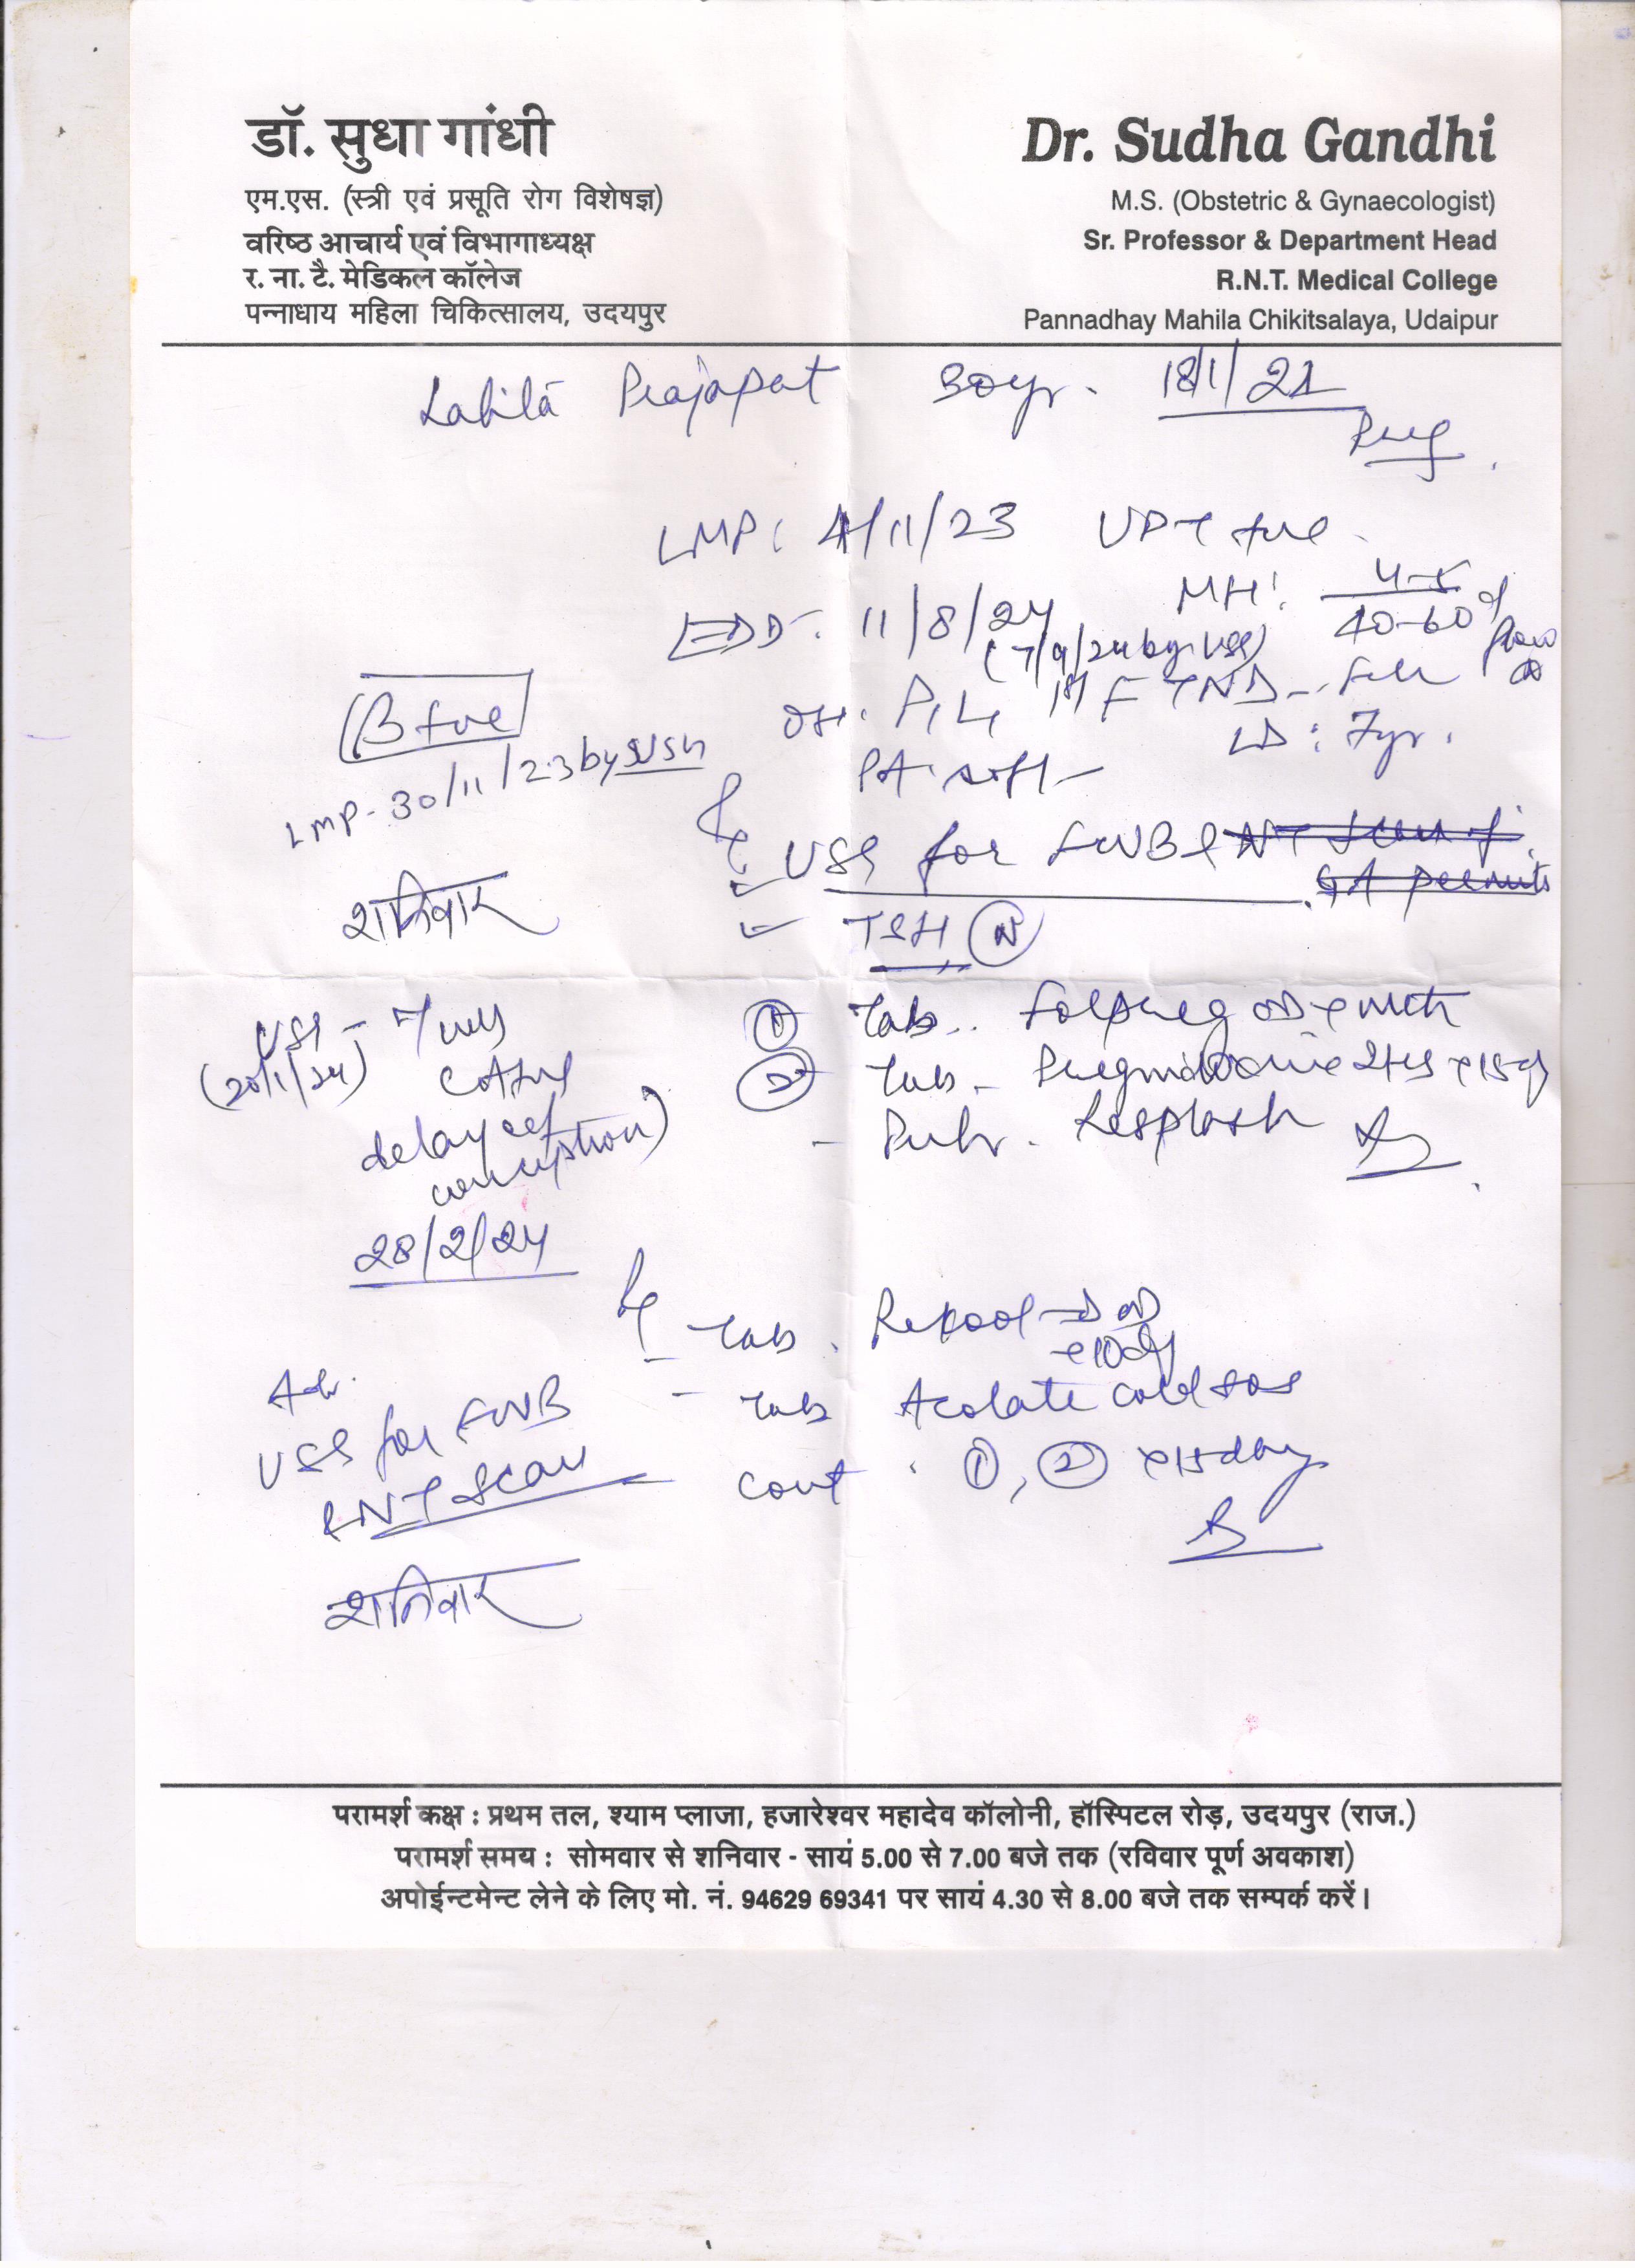 डॉ. सुधा गांधी
एम.एस. (स्त्री एवं प्रसूति रोग विशेषज्ञ)
वरिष्ठ आचार्य एवं विभागाध्यक्ष
र. ना. टै. मेडिकल कॉलेज
पन्नाधाय महिला चिकित्सालय, उदयपुर
Dr. Sudha Gandhi
M.S. (Obstetric & Gynaecologist)
Sr. Professor & Department Head
R.N.T. Medical College
Pannadhay Mahila Chikitsalaya, Udaipur
Prajapat 30yr. 18/1/21
LMP: 4/11/23 UPT +ve
EDD: 11/8/24 MH: 4-5/40-60 d
(7/9/24 by USG) flow
OH: P1L1 FTND
LD: 7yr.
B +ve
LMP- 30/11/23 by
PA: soft
USG for FWB & NT scan if
GA permits
शनिवार
TSH N
USG - 7 wks
(20/1/24)
delayed
conception)
1 Tab. Folpreg OD
2 Tab.
28/2/24
Tab. Rekool-D OD
10 d
Adv.
USG for FWB
& NT scan
Tab Acolate cold sos
cont. 1, 2 15 day
शनिवार
परामर्श कक्ष : प्रथम तल, श्याम प्लाजा, हजारेश्वर महादेव कॉलोनी, हॉस्पिटल रोड़, उदयपुर (राज.)
परामर्श समय : सोमवार से शनिवार - सायं 5.00 से 7.00 बजे तक (रविवार पूर्ण अवकाश)
अपोईन्टमेन्ट लेने के लिए मो. नं. 94629 69341 पर सायं 4.30 से 8.00 बजे तक सम्पर्क करें।